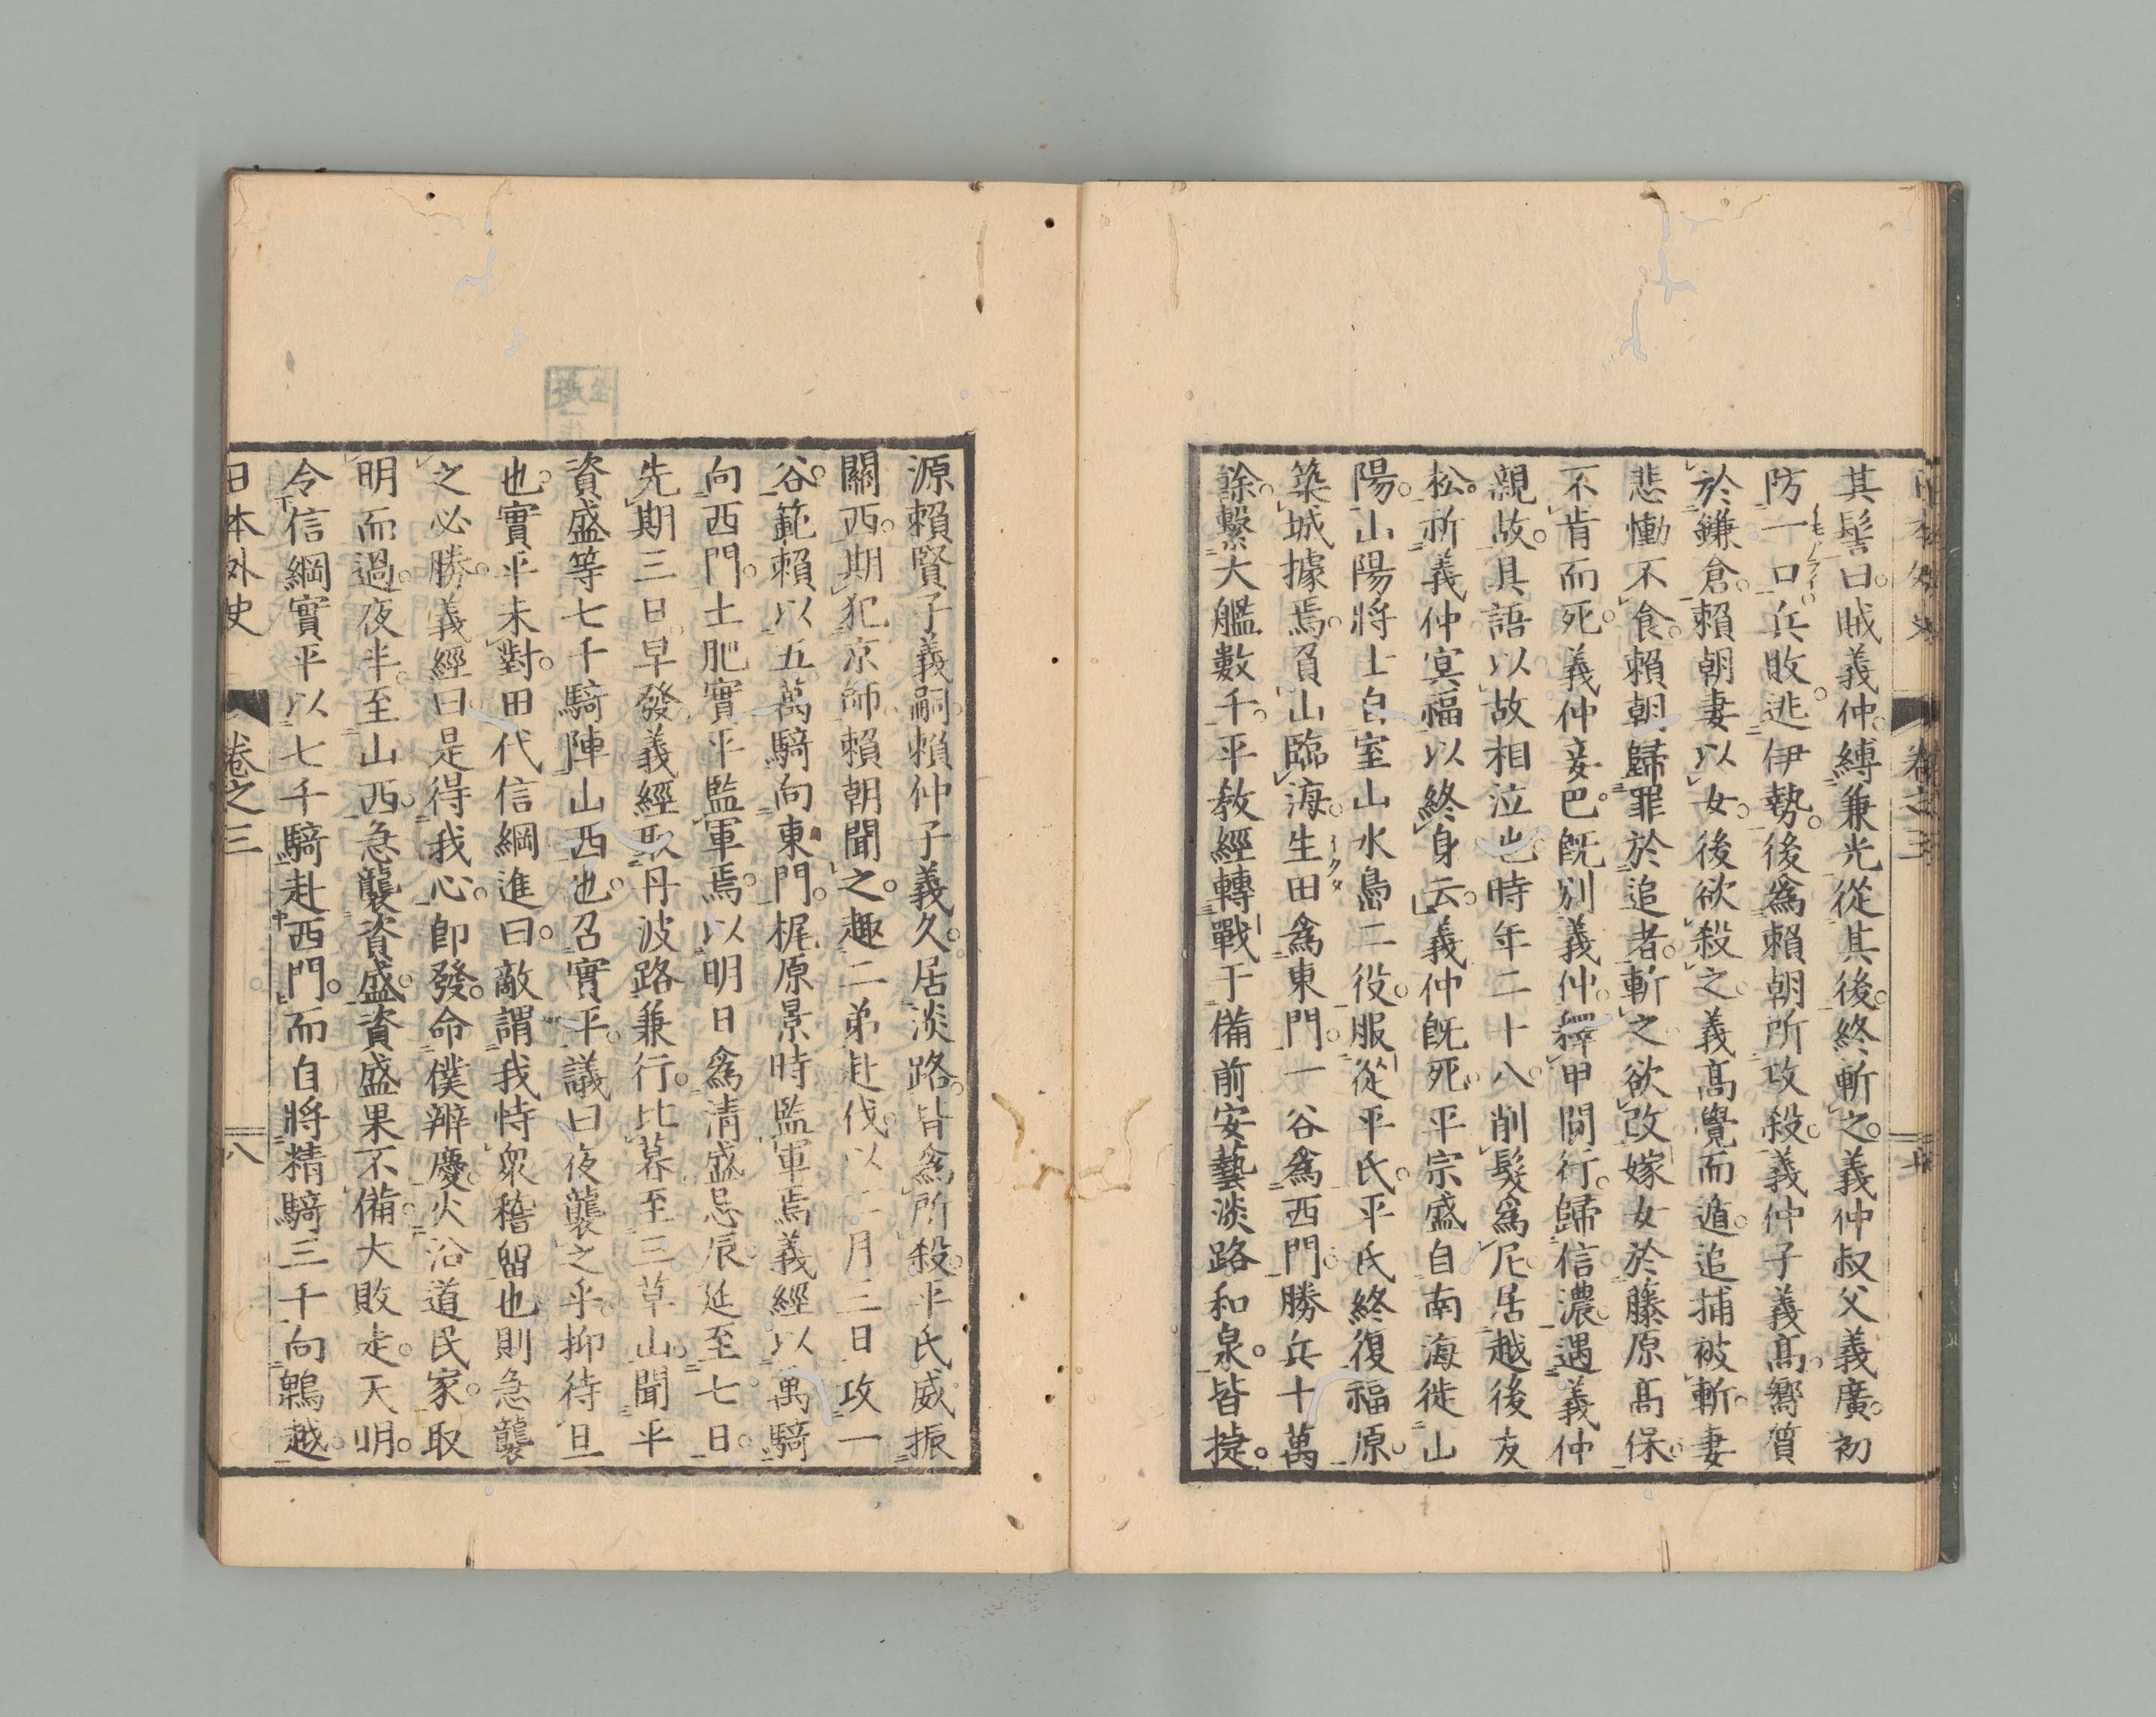 其髻曰。賊義仲。縛兼光從其後。終斬之。義仲叔父義廣。初
防一口。兵敗。逃伊勢。後爲賴朝所攻殺。義仲子義高。嚮質
於鎌倉。賴朝妻以女。後欲殺之。義高覺而遁。追捕被斬。妻
悲慟不食。賴朝歸罪於追者。斬之。欲改嫁女於藤原高保。
不肯而死。義仲妾巴。既別義仲。釋甲間行。歸信濃。遇義仲
親故。具語以故相泣也。時年二十八。削髮爲尼。居越後友
松。祈義仲冥福。以終身云。義仲既死。平宗盛自南海徙山
陽。山陽將士自室山水島二役。服從平氏。平氏終復福原。
築城據焉。負山臨海。生田爲東門。一谷爲西門。勝兵十萬
餘。繫大艦數千。平敎經轉戰于備前安藝淡路和泉。皆捷。
源賴賢子義嗣。賴仲子義久。居淡路。皆爲所殺。平氏威振
關西。期犯京師。賴朝聞之。趣二弟赴伐。以二月三日攻一
谷。範賴以五萬騎向東門。梶原景時監軍焉。義經以二萬騎
向西門。土肥實平監軍焉。以明日爲清盛忌辰。延至七日。
先期三日。早發。義經取丹波路兼行。比暮至三草山。聞平
資盛等七千騎陣山西也。召實平。議曰。夜襲之乎。抑待旦
也。實平未對。田代信綱進曰。敵謂我恃衆稽留也。則急襲
之必勝。義經曰。是得我心。卽發。命僕辨慶。火沿道民家。取
明而過。夜半。至山西。急襲資盛。資盛果不備。大敗走。天明。
令信綱實平以七千騎赴西門。而自將精騎三千向鵯越。
日本外史 卷之三 八